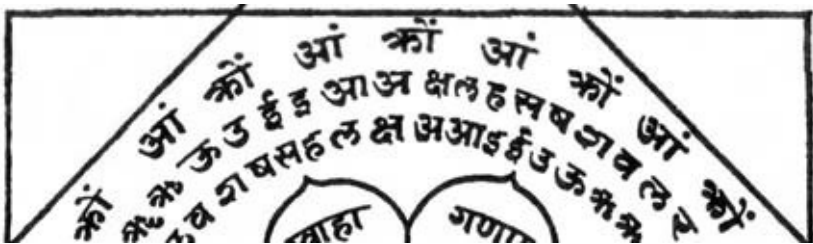 क्रों आं क्रों आं क्रों आं क्रों आं क्रों
ॠ ऋ ऊ उ ई इ आ अ क्ष ल ह स ष श व ल र
व श ष स ह ल क्ष अ आ इ ई उ ऊ ऋ ॠ